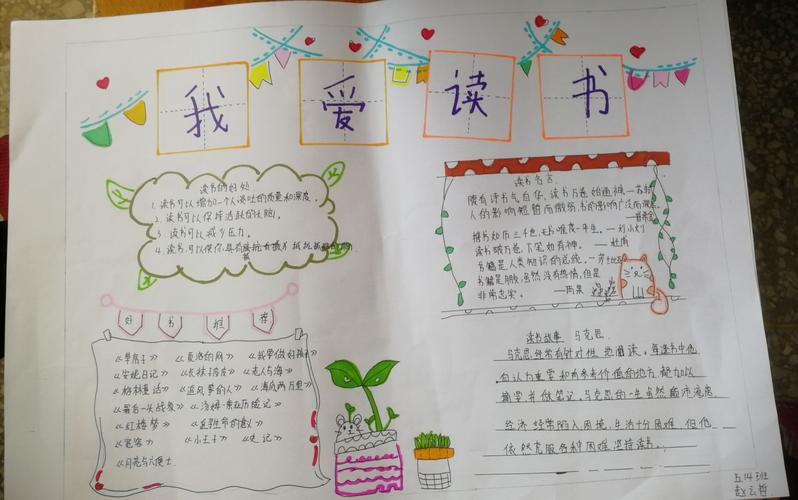 我爱读书
读书的好处
1. 读书可以增加一个人谈吐的质量和深度。
2. 读书可以保持活跃的大脑。
3. 读书可以减少压力。
4. 读书可以使你具有
读书名言
腹有诗书气自华，读书万卷始通神。—苏轼
人的影响短暂而微弱，书的影响广泛而深远。
—普希金
拥书如历三千世，无书唯度一平生。—刘小川
读书破万卷，下笔如有神。—杜甫
书籍是人类知识的总统。—莎士比亚
书籍是朋友，虽然没有热情，但是
非常忠实。—雨果
好书推荐
《草房子》《夏洛的网》《我要做好孩子》
《安妮日记》《长袜子皮皮》《老人与海》
《格林童话》《追风筝的人》《海底两万里》
《最后一头战象》《汤姆·索亚历险记》
《红楼梦》《生命的意义》
《窗客》《小王子》《史记》
《月亮与六便士
读书故事 马克思
马克思经常有针对性地阅读，每读书中他
自认为重要和有参考价值的地方，都加以
摘录并做笔记。马克思的一生虽然颠沛流离，
经济经常陷入困境，生活十分困难，但他
依然克服各种困难，坚持读书。
五.14班
赵云哲